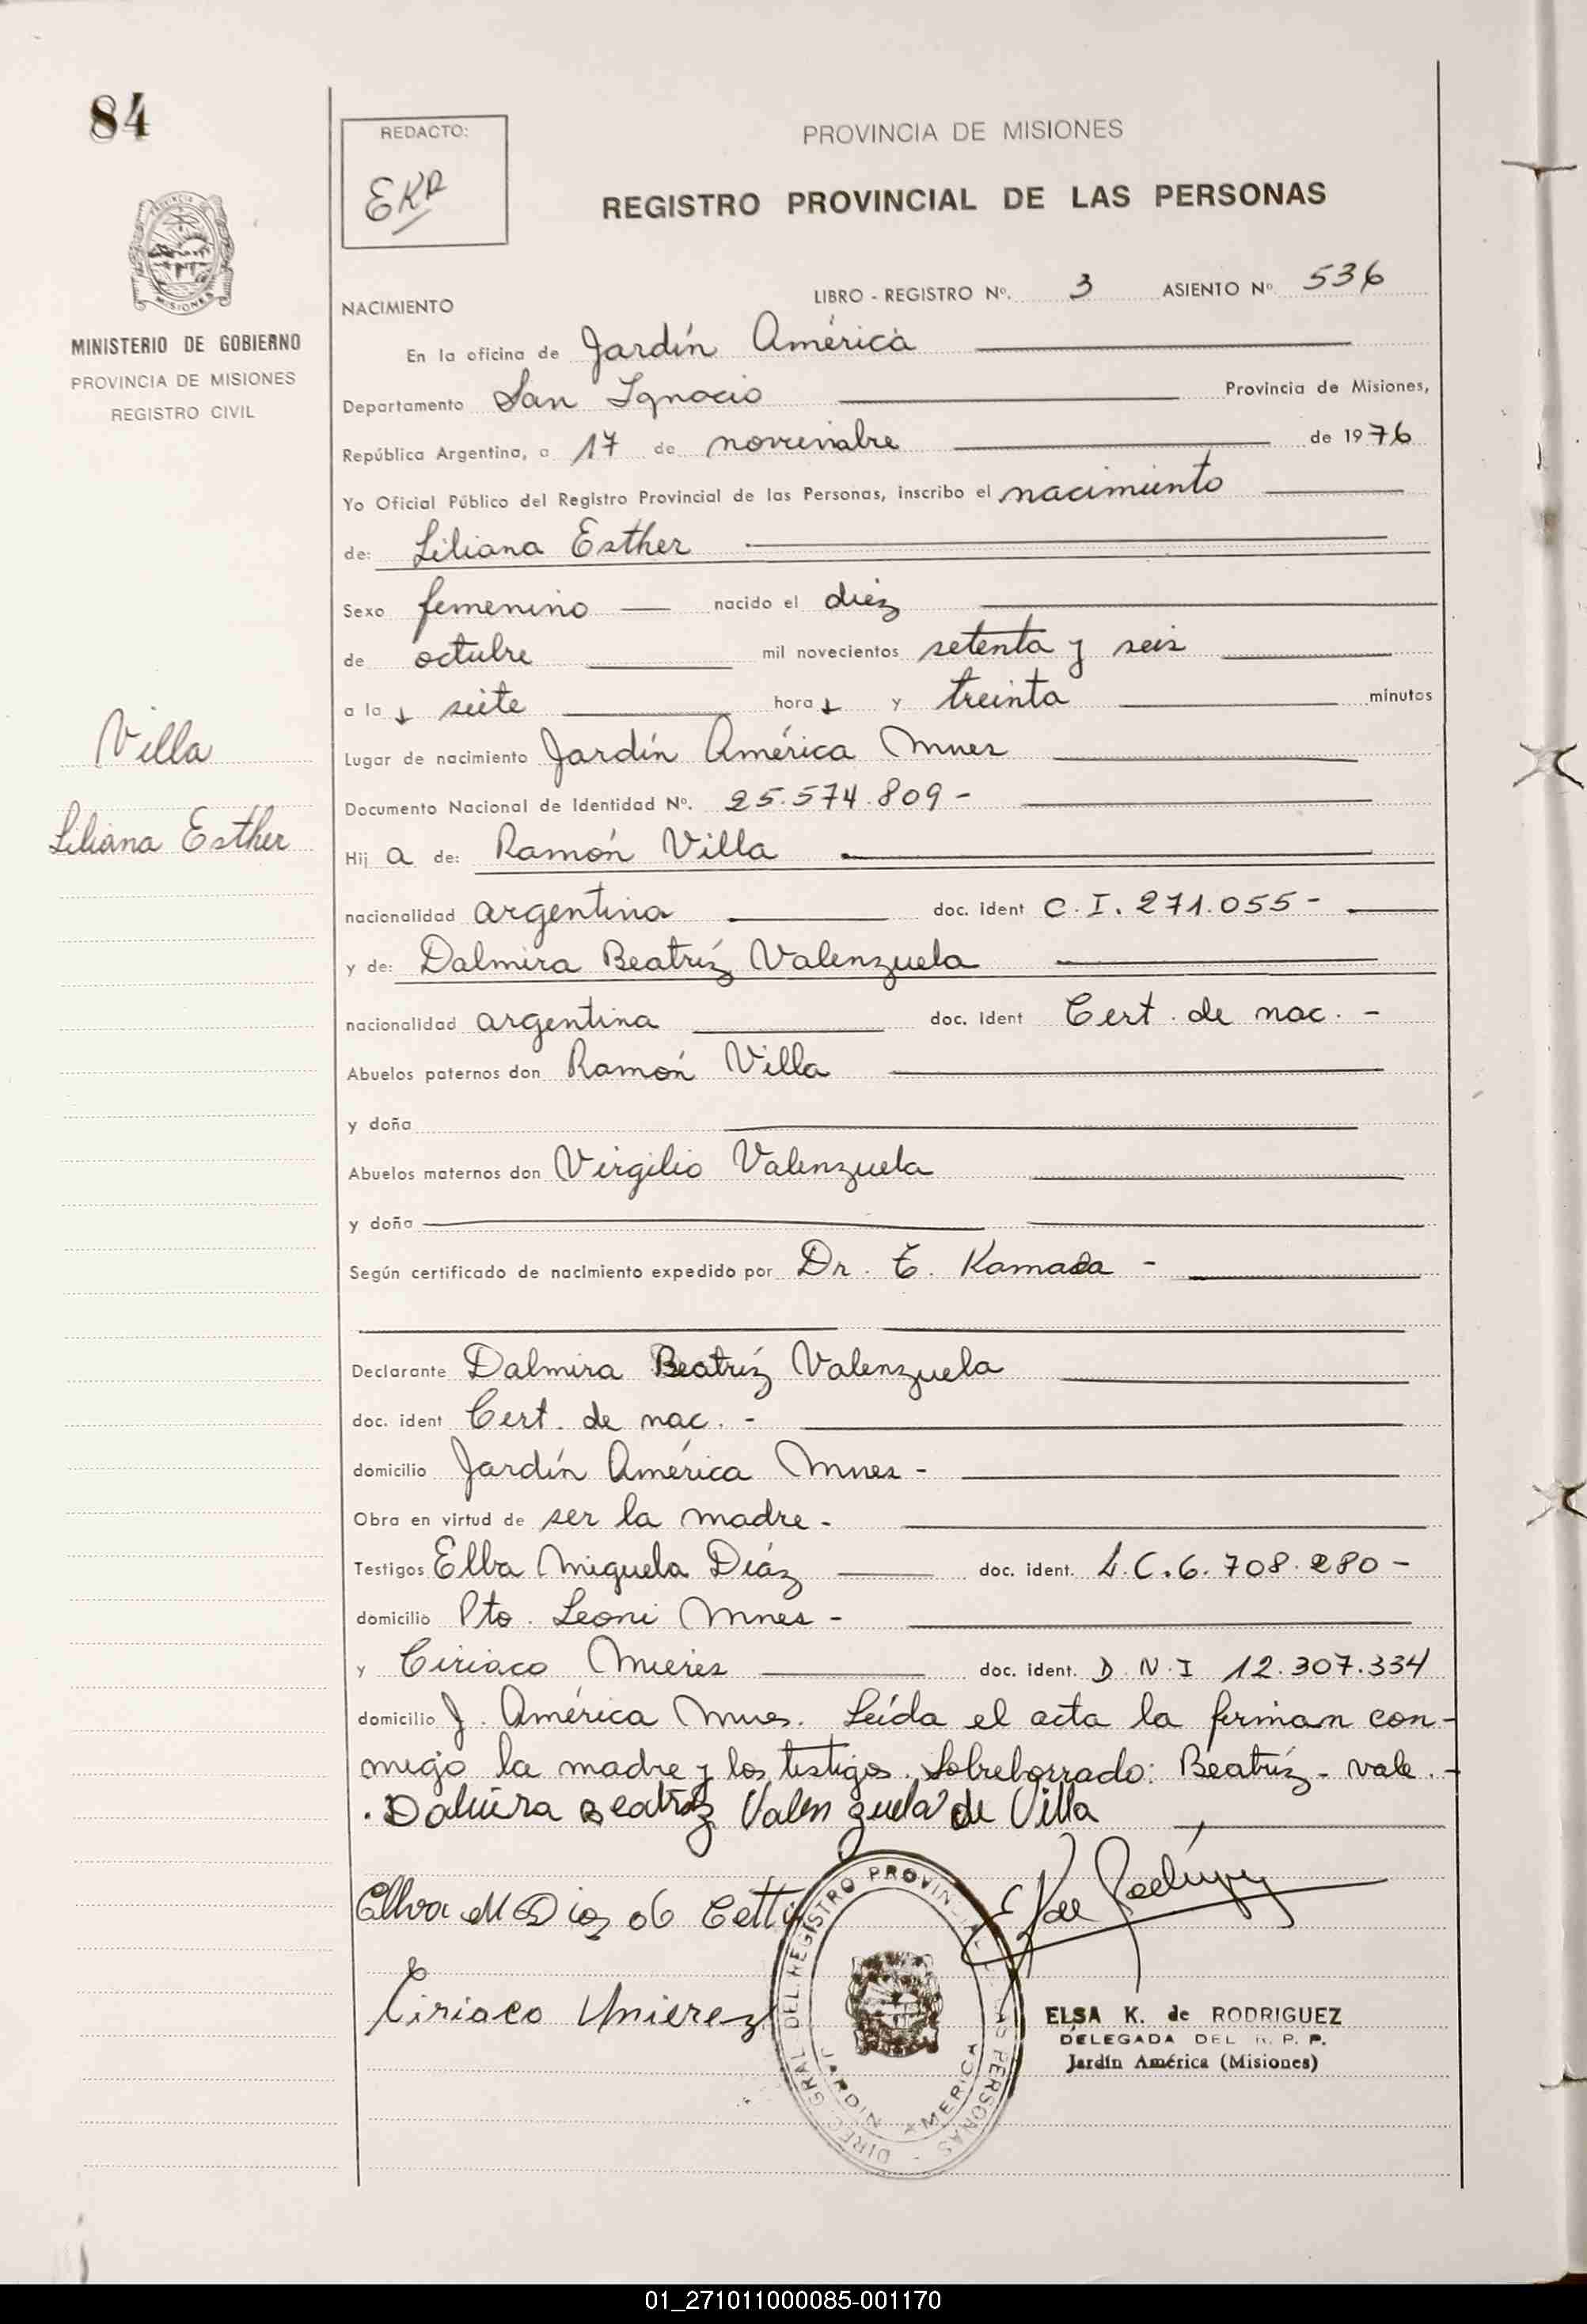 84
REDACTO:
EKR
PROVINCIA DE MISIONES
REGISTRO PROVINCIAL DE LAS PERSONAS
PROVINCIA DE MISIONES
MINISTERIO DE GOBIERNO
PROVINCIA DE MISIONES
REGISTRO CIVIL
NACIMIENTO
LIBRO - REGISTRO Nº. 3 ASIENTO Nº 536
En la oficina de Jardín América
Departamento San Ignacio Provincia de Misiones,
República Argentina, a 17 de noviembre de 1976
Yo Oficial Público del Registro Provincial de las Personas, inscribo el nacimiento
de: Liliana Esther
Sexo femenino nacido el diéz
de octubre mil novecientos setenta y seis
a la s siete hora s y treinta minutos
Villa
Lugar de nacimiento Jardín América Mnes
Documento Nacional de Identidad Nº. 25.574.809 -
Liliana Esther
Hij a de: Ramón Villa
nacionalidad argentina doc. ident C.I. 271.055 -
y de: Dalmira Beatríz Valenzuela
nacionalidad argentina doc. ident Cert. de nac. -
Abuelos paternos don Ramón Villa
y doña
Abuelos maternos don Virgilio Valenzuela
y doña
Según certificado de nacimiento expedido por Dr. T. Kamada -
Declarante Dalmira Beatríz Valenzuela
doc. ident Cert. de nac. -
domicilio Jardín América Mnes -
Obra en virtud de ser la madre -
Testigos Elba Miguela Díaz doc. ident. L.C. 6.708.280 -
domicilio Pto. Leoni Mnes -
y Ciriaco Mieres doc. ident. D.N.I 12.307.334
domicilio J. América Mnes. Leída el acta la firman con-
migo la madre y los testigos. Sobreborrado: Beatríz - vale. -
. Dalmira Beatriz Valenzuela de Villa
Elba M Diaz de
Ciriaco Mierez
DIREC. GRAL. DEL REGISTRO PROVINCIAL DE LAS PERSONAS
JARDIN AMERICA
ELSA K. de RODRIGUEZ
DELEGADA DEL R. P. P.
Jardín América (Misiones)
01_271011000085-001170